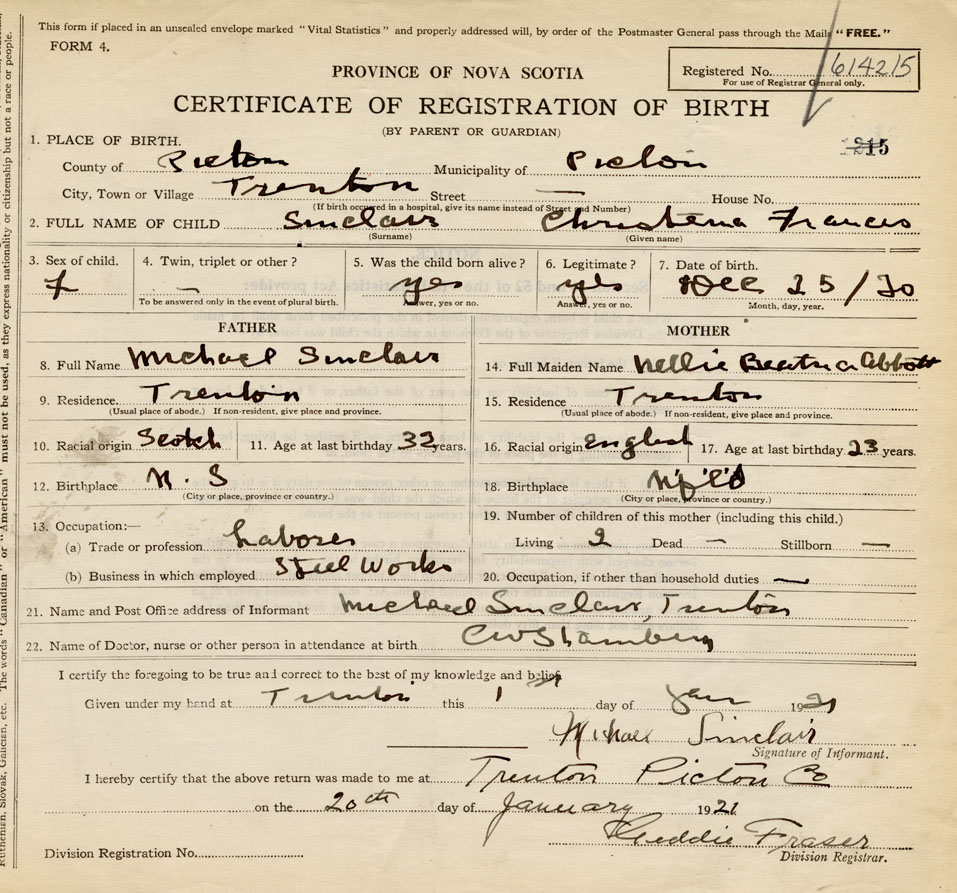 This form if placed in an unsealed envelope marked "Vital Statistics" and properly addressed will, by order of the Postmaster General pass through the Mails "FREE."
FORM 4.
Registered No. 614215
For use of Registrar General only.
PROVINCE OF NOVA SCOTIA
CERTIFICATE OF REGISTRATION OF BIRTH
(BY PARENT OR GUARDIAN)
215
1. PLACE OF BIRTH.
County of Picton Municipality of Picton
City, Town or Village Trenton Street — House No.
(If birth occurred in a hospital, give its name instead of Street and Number)
2. FULL NAME OF CHILD Sinclair Christena Frances
(Surname) (Given name)
3. Sex of child. 4. Twin, triplet or other? 5. Was the child born alive? 6. Legitimate? 7. Date of birth.
f — yes yes Dec 25/20
To be answered only in the event of plural birth. Answer, yes or no. Answer, yes or no. Month, day, year.
FATHER MOTHER
8. Full Name Michael Sinclair 14. Full Maiden Name Nellie Beatrice Abbott
9. Residence Trenton 15. Residence Trenton
(Usual place of abode.) If non-resident, give place and province. (Usual place of abode.) If non-resident, give place and province.
10. Racial origin Scotch 11. Age at last birthday 32 years. 16. Racial origin English 17. Age at last birthday 23 years.
12. Birthplace N. S 18. Birthplace Nfl'd
(City or place, province or country.) (City or place, province or country.)
13. Occupation:— 19. Number of children of this mother (including this child.)
(a) Trade or profession Laborer Living 2 Dead — Stillborn —
(b) Business in which employed Steel Works 20. Occupation, if other than household duties —
21. Name and Post Office address of Informant Michael Sinclair, Trenton
22. Name of Doctor, nurse or other person in attendance at birth
I certify the foregoing to be true and correct to the best of my knowledge and belief.
Given under my hand at Trenton this 1 day of Jan 1921
Michael Sinclair
Signature of Informant.
I hereby certify that the above return was made to me at Trenton Picton Co
on the 20th day of January 1921
Geddie Fraser
Division Registrar.
Division Registration No.
Ruthenian, Slovak, Galician, etc. The words "Canadian" or "American" must not be used, as they express nationality or citizenship but not a race or people.